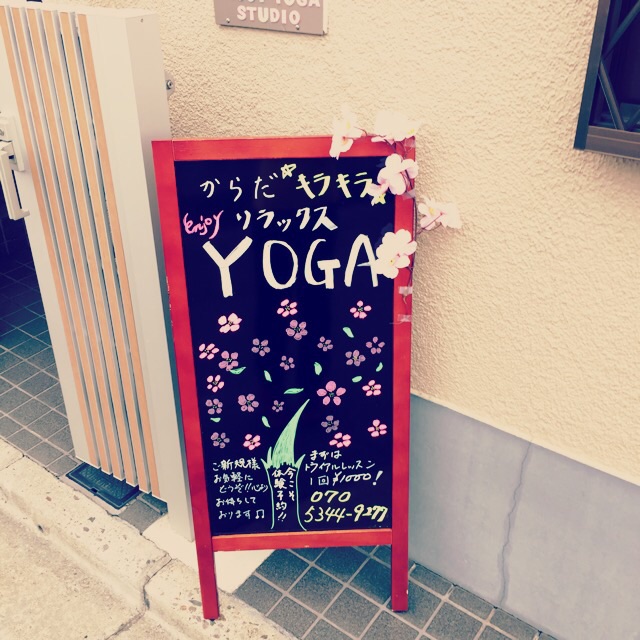 YOGA
STUDIO
からだ キラキラ
enjoy リラックス
YOGA
ご新規様
お気軽に
どうぞ!!
お待ちして
おります♫
今こそ
体験予約!!
まずは
トライアルレッスン
1回 ¥1000!
070
5344-9277